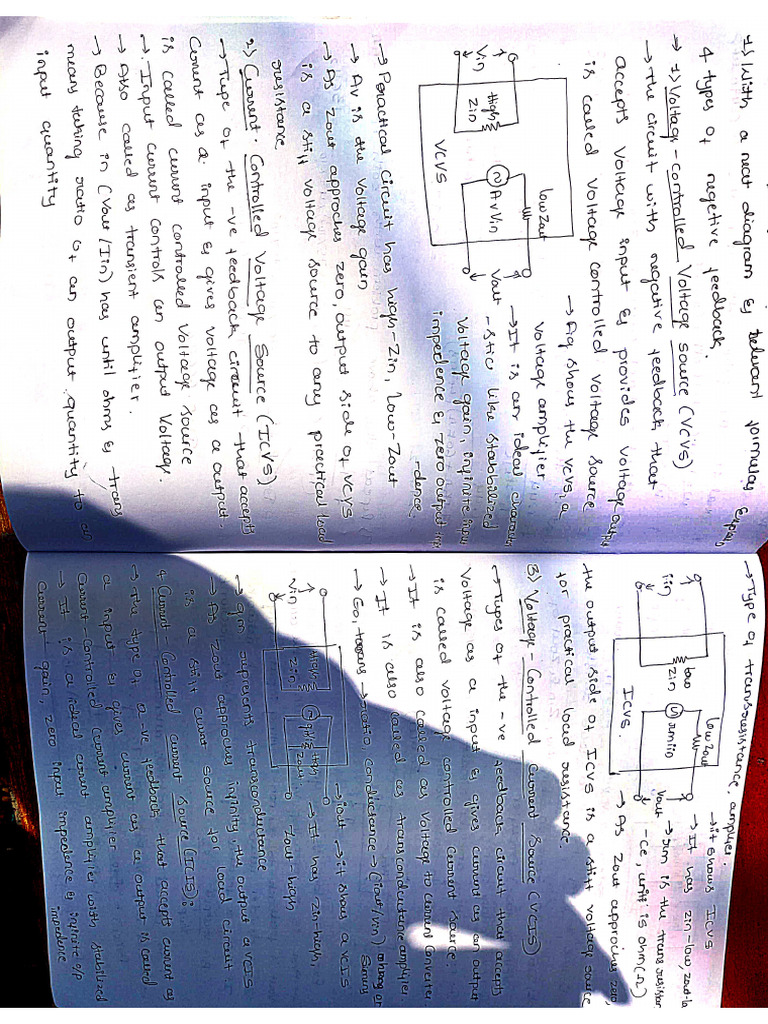 1) With a neat diagram & relevant formulas explain
4 types of negetive feedback.
→ 1) Voltage - Controlled Voltage source (VCVS)
→ The circuit with negative feedback that
accepts voltage input & provides voltage output
is called voltage controlled voltage source
→ Fig shows the VCVS, a
voltage amplifier
→ It is an ideal
-stic like stabbilized
voltage gain, infinite input
impedence & zero output
-dence.
Vin
High
Zin
AvVin
low Zout
Vout
VCVS
→ Practical circuit has high-Zin, low-Zout
→ Av is the voltage gain
→ As Zout approches zero, output side of VCVS
is a stiff voltage source to any practical load
resistance
2) Current - Controlled Voltage Source (ICVS)
→ Type of the -ve feedback circuit that accepts
Current as a input & gives voltage as a output.
is called current controlled voltage source
→ Input current controls an output voltage.
→ Also called as transient amplifier.
→ Because in (Vout/Iin) has until ohms & trans
means taking ratio of an output quantity to an
input quantity
→ Type of transresistance amplifier.
→ it shows ICVS
→ It has zin-low, zout-lo
→ rm is the transresistan
-ce, unit is ohm (Ω)
→ As zout approches zero,
iin
low
zin
rmiin
low Zout
Vout
ICVS.
the output side of ICVS is a stiff voltage source
for practical load resistance.
3) Voltage - Controlled Current Source (VCIS)
→ Types of the -ve feedback circuit that accepts
Voltage as a input & gives current as an output
is called voltage controlled current source.
→ It is also called as voltage to current converter
→ It is also called as transconductance amplifier
→ Go, trans → ratio, conductance → (iout/vin) mhing or
Siming
Vin
High
Zin
High
Zout
iout
→ it shows a VCIS
→ It has zin-high,
Zout-high
→ gm represents transconductance
→ As zout approches infinity, the output a VCIS
is a stiff current source for load circuit
4 Current - Controlled Current Source (ICIS):
→ The type of a -ve feedback that accepts current as
a input & gives current as a output is called
Current-controlled current amplifier
→ It is a ideal current amplifier with stabilized
current gain, zero input impedence & infinite o/p
impedence